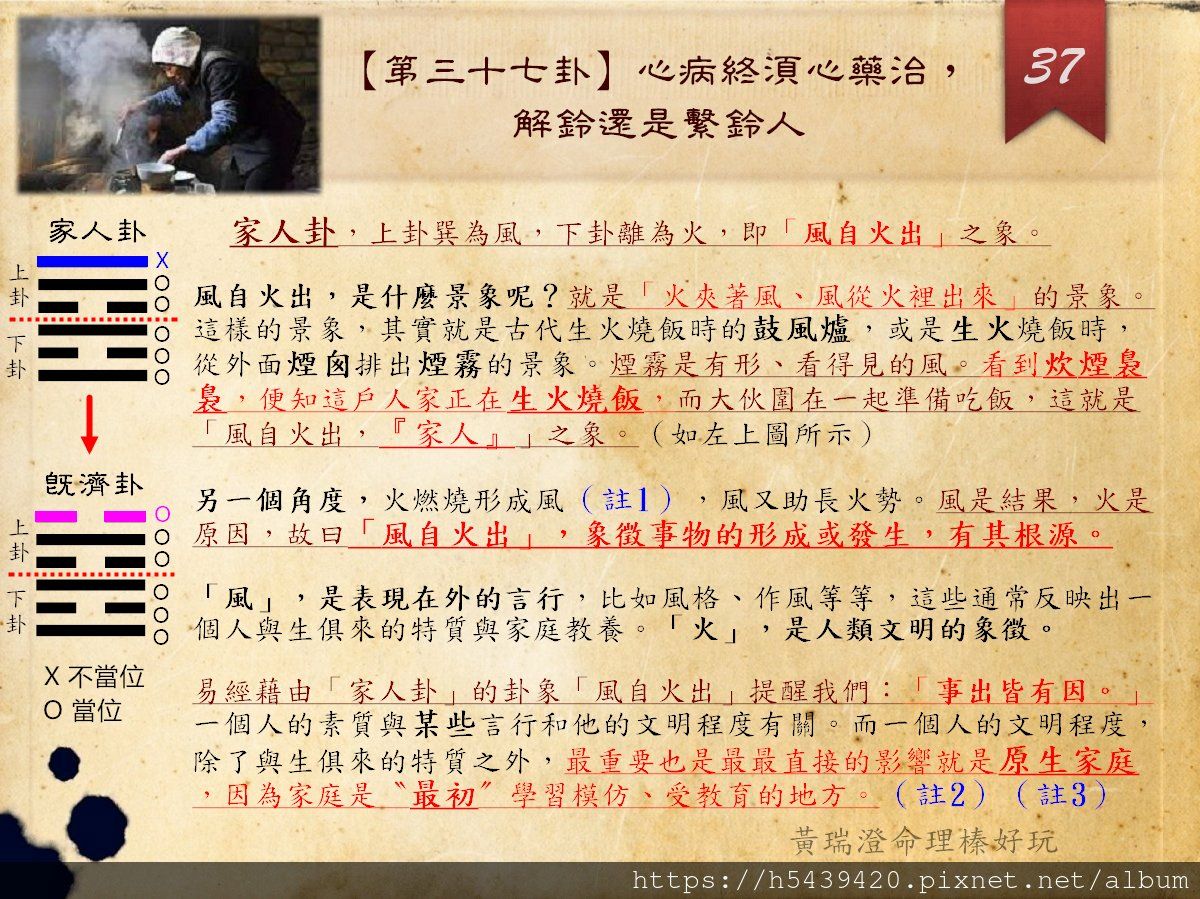 【第三十七卦】心病終須心藥治，
解鈴還是繫鈴人
37
家人卦
上卦
下卦
X
O
O
O
O
O
既濟卦
上卦
下卦
O
O
O
O
O
O
X 不當位
O 當位
家人卦，上卦巽為風，下卦離為火，即「風自火出」之象。
風自火出，是什麼景象呢？就是「火夾著風、風從火裡出來」的景象。
這樣的景象，其實就是古代生火燒飯時的鼓風爐，或是生火燒飯時，
從外面煙囪排出煙霧的景象。煙霧是有形、看得見的風。看到炊煙裊
裊，便知這戶人家正在生火燒飯，而大伙圍在一起準備吃飯，這就是
「風自火出，『家人』」之象。（如左上圖所示）
另一個角度，火燃燒形成風（註1），風又助長火勢。風是結果，火是
原因，故曰「風自火出」，象徵事物的形成或發生，有其根源。
「風」，是表現在外的言行，比如風格、作風等等，這些通常反映出一
個人與生俱來的特質與家庭教養。「火」，是人類文明的象徵。
易經藉由「家人卦」的卦象「風自火出」提醒我們：「事出皆有因。」
一個人的素質與某些言行和他的文明程度有關。而一個人的文明程度，
除了與生俱來的特質之外，最重要也是最最直接的影響就是原生家庭
，因為家庭是〝最初〞學習模仿、受教育的地方。（註2）（註3）
黃瑞澄命理榛好玩
https://h5439420.pixnet.net/album